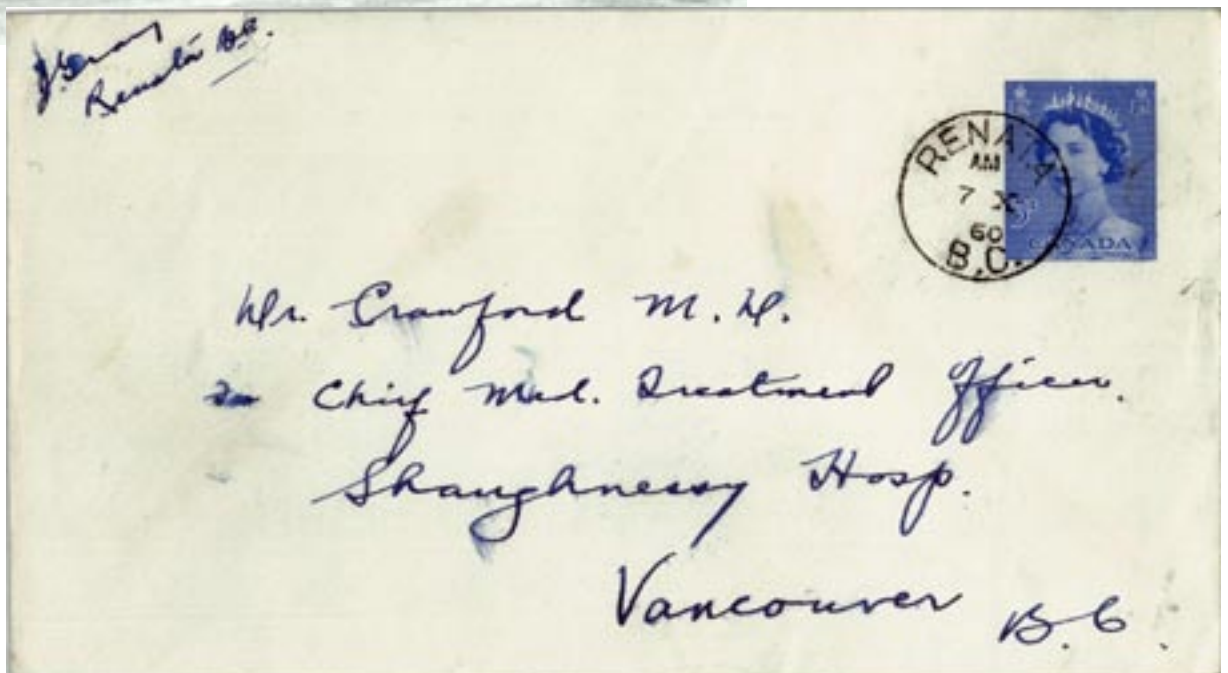 Renata B.C.
RENATA
AM
7 X
60
B.C.
5
CANADA
Dr. Crawford M.D.
Chief Med. Treatment Officer.
Shaughnessy Hosp.
Vancouver B.C.